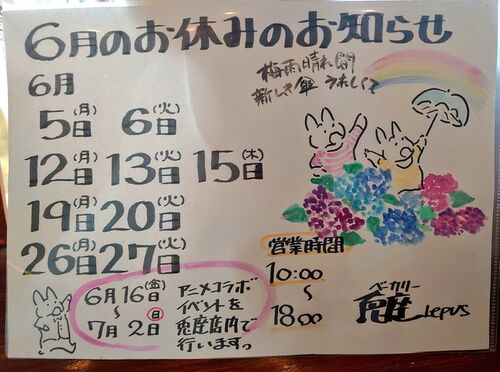 6月のお休みのお知らせ
6月
5(月)日 6(火)日
12(月)日 13(火)日 15(木)日
19(月)日 20(火)日
26(月)日 27(火)日
梅雨晴れ間
新しき傘 うれしくて
営業時間
10:00
〜
18:00
6月16(金)日
〜
7月2(日)日
アニメコラボ
イベントを
兎座店内で
行います。
ベーカリー
兎座 Lepus